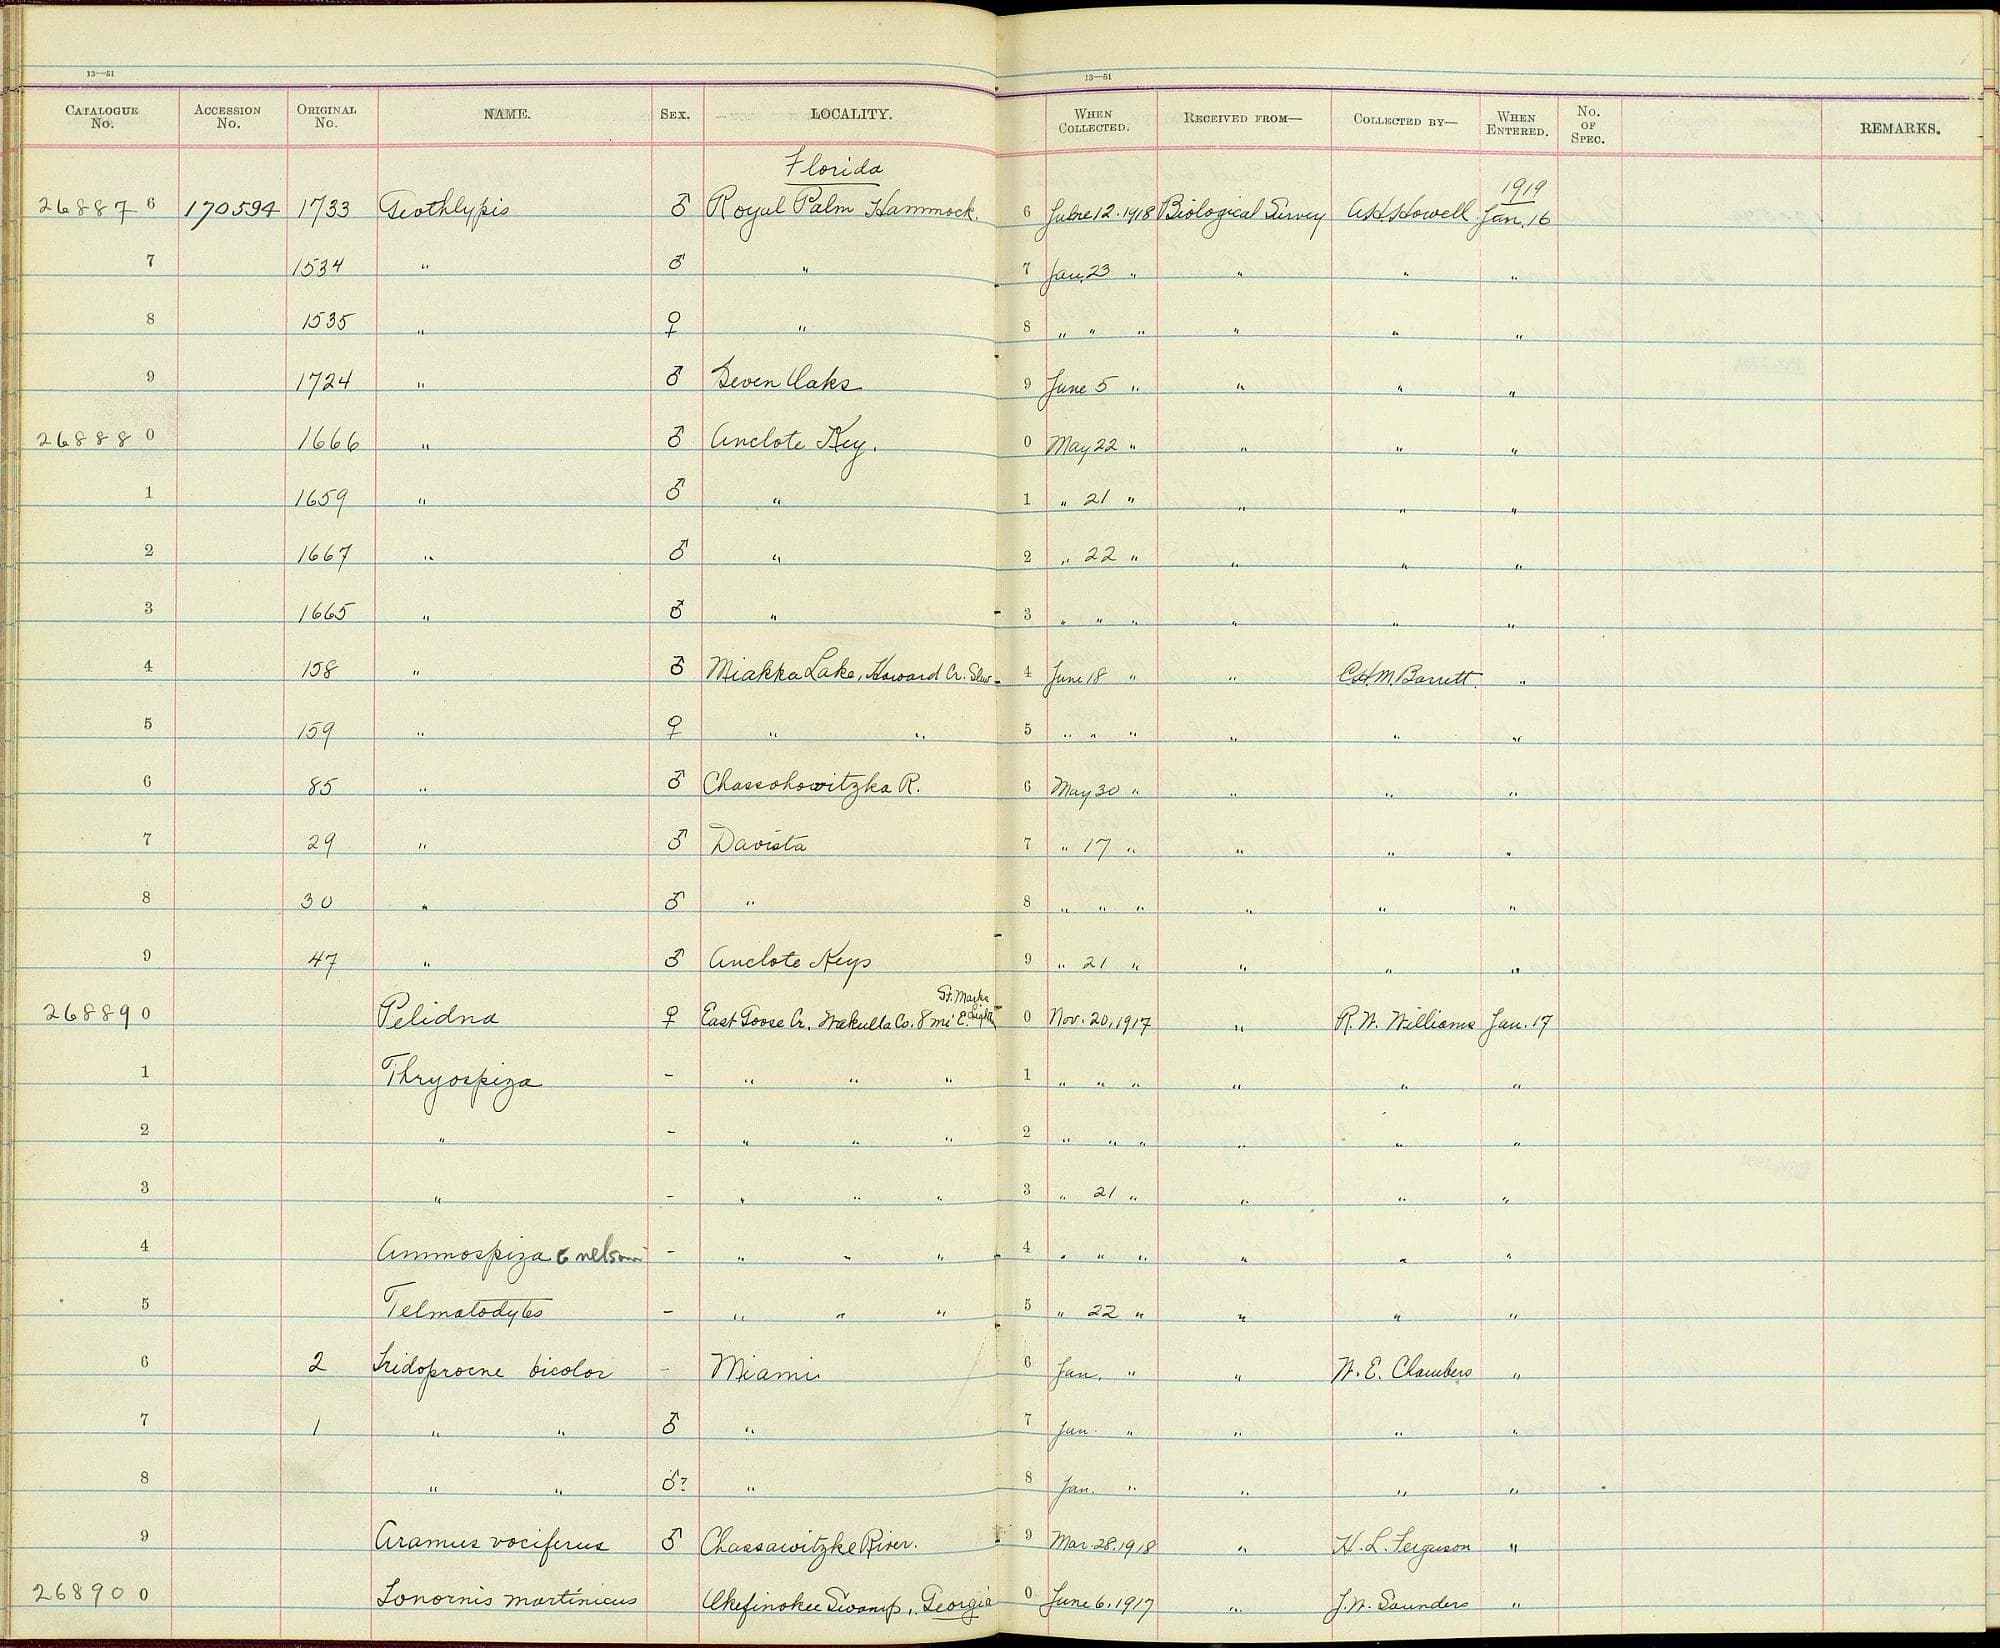 13—51 13—51
CATALOGUE No. ACCESSION No. ORIGINAL No. NAME. SEX. LOCALITY. WHEN COLLECTED. RECEIVED FROM— COLLECTED BY— WHEN ENTERED. No. OF SPEC. REMARKS.
Florida 1919
268876 170594 1733 Geothlypis ♂ Royal Palm Hammock. 6 June 12. 1918 Biological Survey A.H. Howell Jan. 16
7 1534 " ♂ " 7 Jan. 23 " " " "
8 1535 " ♀ " 8 " " " " " "
9 1724 " ♂ Seven Oaks 9 June 5 " " " "
268880 1666 " ♂ Anclote Key. 0 May 22 " " " "
1 1659 " ♂ " 1 " 21 " " " "
2 1667 " ♂ " 2 " 22 " " " "
3 1665 " ♂ " 3 " " " " " "
4 158 " ♂ Miakka Lake, Howard Cr. 4 June 18 " " C.H.M. Barrett. "
5 159 " ♀ " " 5 " " " " " "
6 85 " ♂ Chassohowitzka R. 6 May 30 " " " "
7 29 " ♂ Davista 7 " 17 " " " "
8 30 " ♂ " 8 " " " " " "
9 47 " ♂ Anclote Keys 9 " 21 " " " "
268890 Pelidna ♀ East Goose Cr., Wakulla Co. 8 mi E. St. Marks Light 0 Nov. 20, 1917 " R. W. Williams Jan. 17
1 Thryospiza - " " " 1 " " " " " "
2 " - " " " 2 " " " " " "
3 " - " " " 3 " 21 " " " "
4 Ammospiza c nelsoni - " " " 4 " " " " " "
5 Telmatodytes - " " " 5 " 22 " " " "
6 2 Iridoprocne bicolor - Miami 6 Jan. " " W. E. Chambers "
7 1 " " ♂ " 7 Jan. " " " "
8 " " ♂? " 8 Jan. " " " "
9 Aramus vociferus ♂ Chassawitzke River. 9 Mar. 28. 1918 " H. L. Ferguson "
268900 Ionornis martinicus Okefinokee Swamp, Georgia 0 June 6. 1917 " J. W. Saunders "